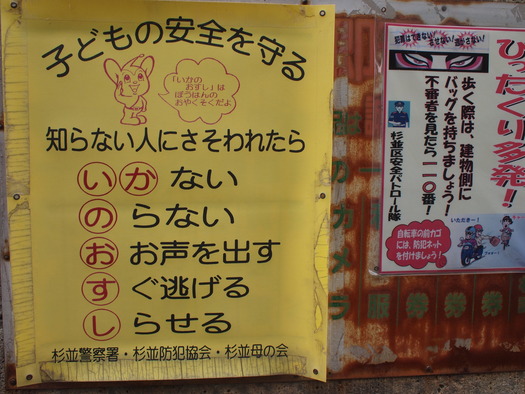 子どもの安全を守る
「いかの
おすし」は
ぼうはんの
おやくそくだよ
知らない人にさそわれたら
いかない
のらない
おお声を出す
すぐ逃げる
しらせる
杉並警察署・杉並防犯協会・杉並母の会
犯罪はできない させない!逃さない!
ひったくり多発!
歩く際は、建物側に
バッグを持ちましょう!
不審者を見たら一一〇番!
杉並区安全パトロール隊
いただきー!
自転車の前カゴ
には、防犯ネット
を付けましょう!